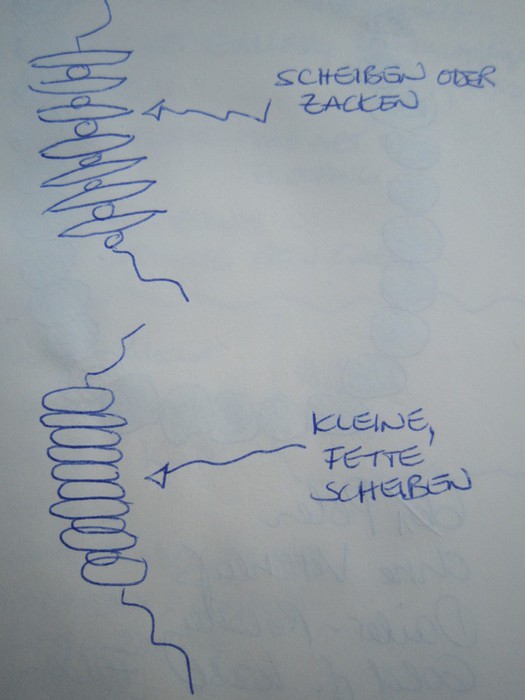 SCHEIBEN ODER
ZACKEN
KLEINE,
FETTE
SCHEIBEN